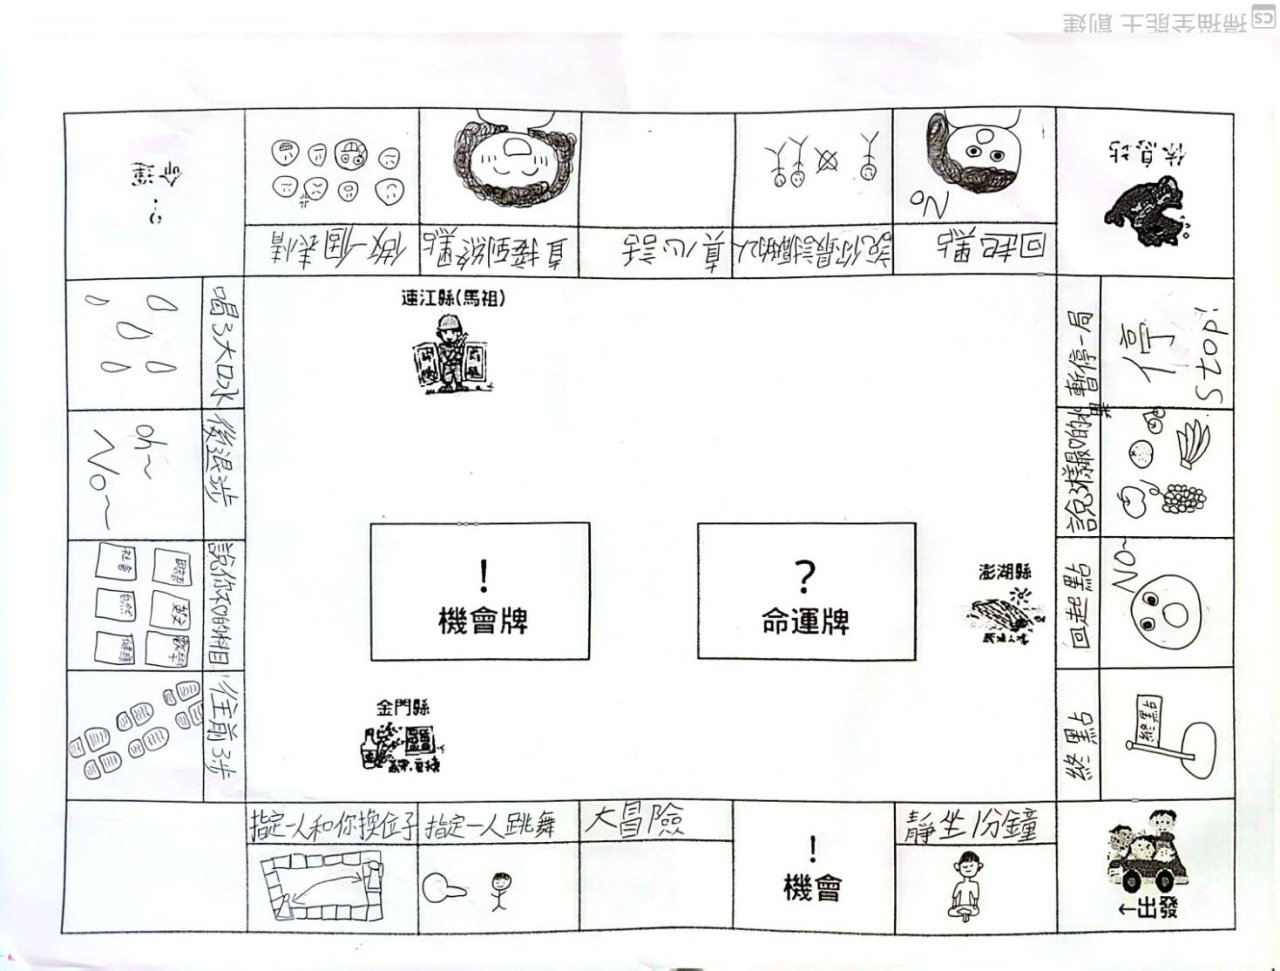 掃描全能王 創建
CS
命運
?
做一個表情
直接到終點
真心話
說你最討厭的人
No
回起點
休息站
喝3大口水
連江縣(馬祖)
停
Stop!
暫停一局
oh~
No~
後退3步
說3樣最喜的水果
!
機會牌
?
命運牌
澎湖縣
社會
國語
自然
英文
健康
數學
說你不喜的科目
NO~
回起點
往前3步
金門縣
終點
終點
指定一人和你換位子
指定一人跳舞
大冒險
!
機會
靜坐1分鐘
←出發